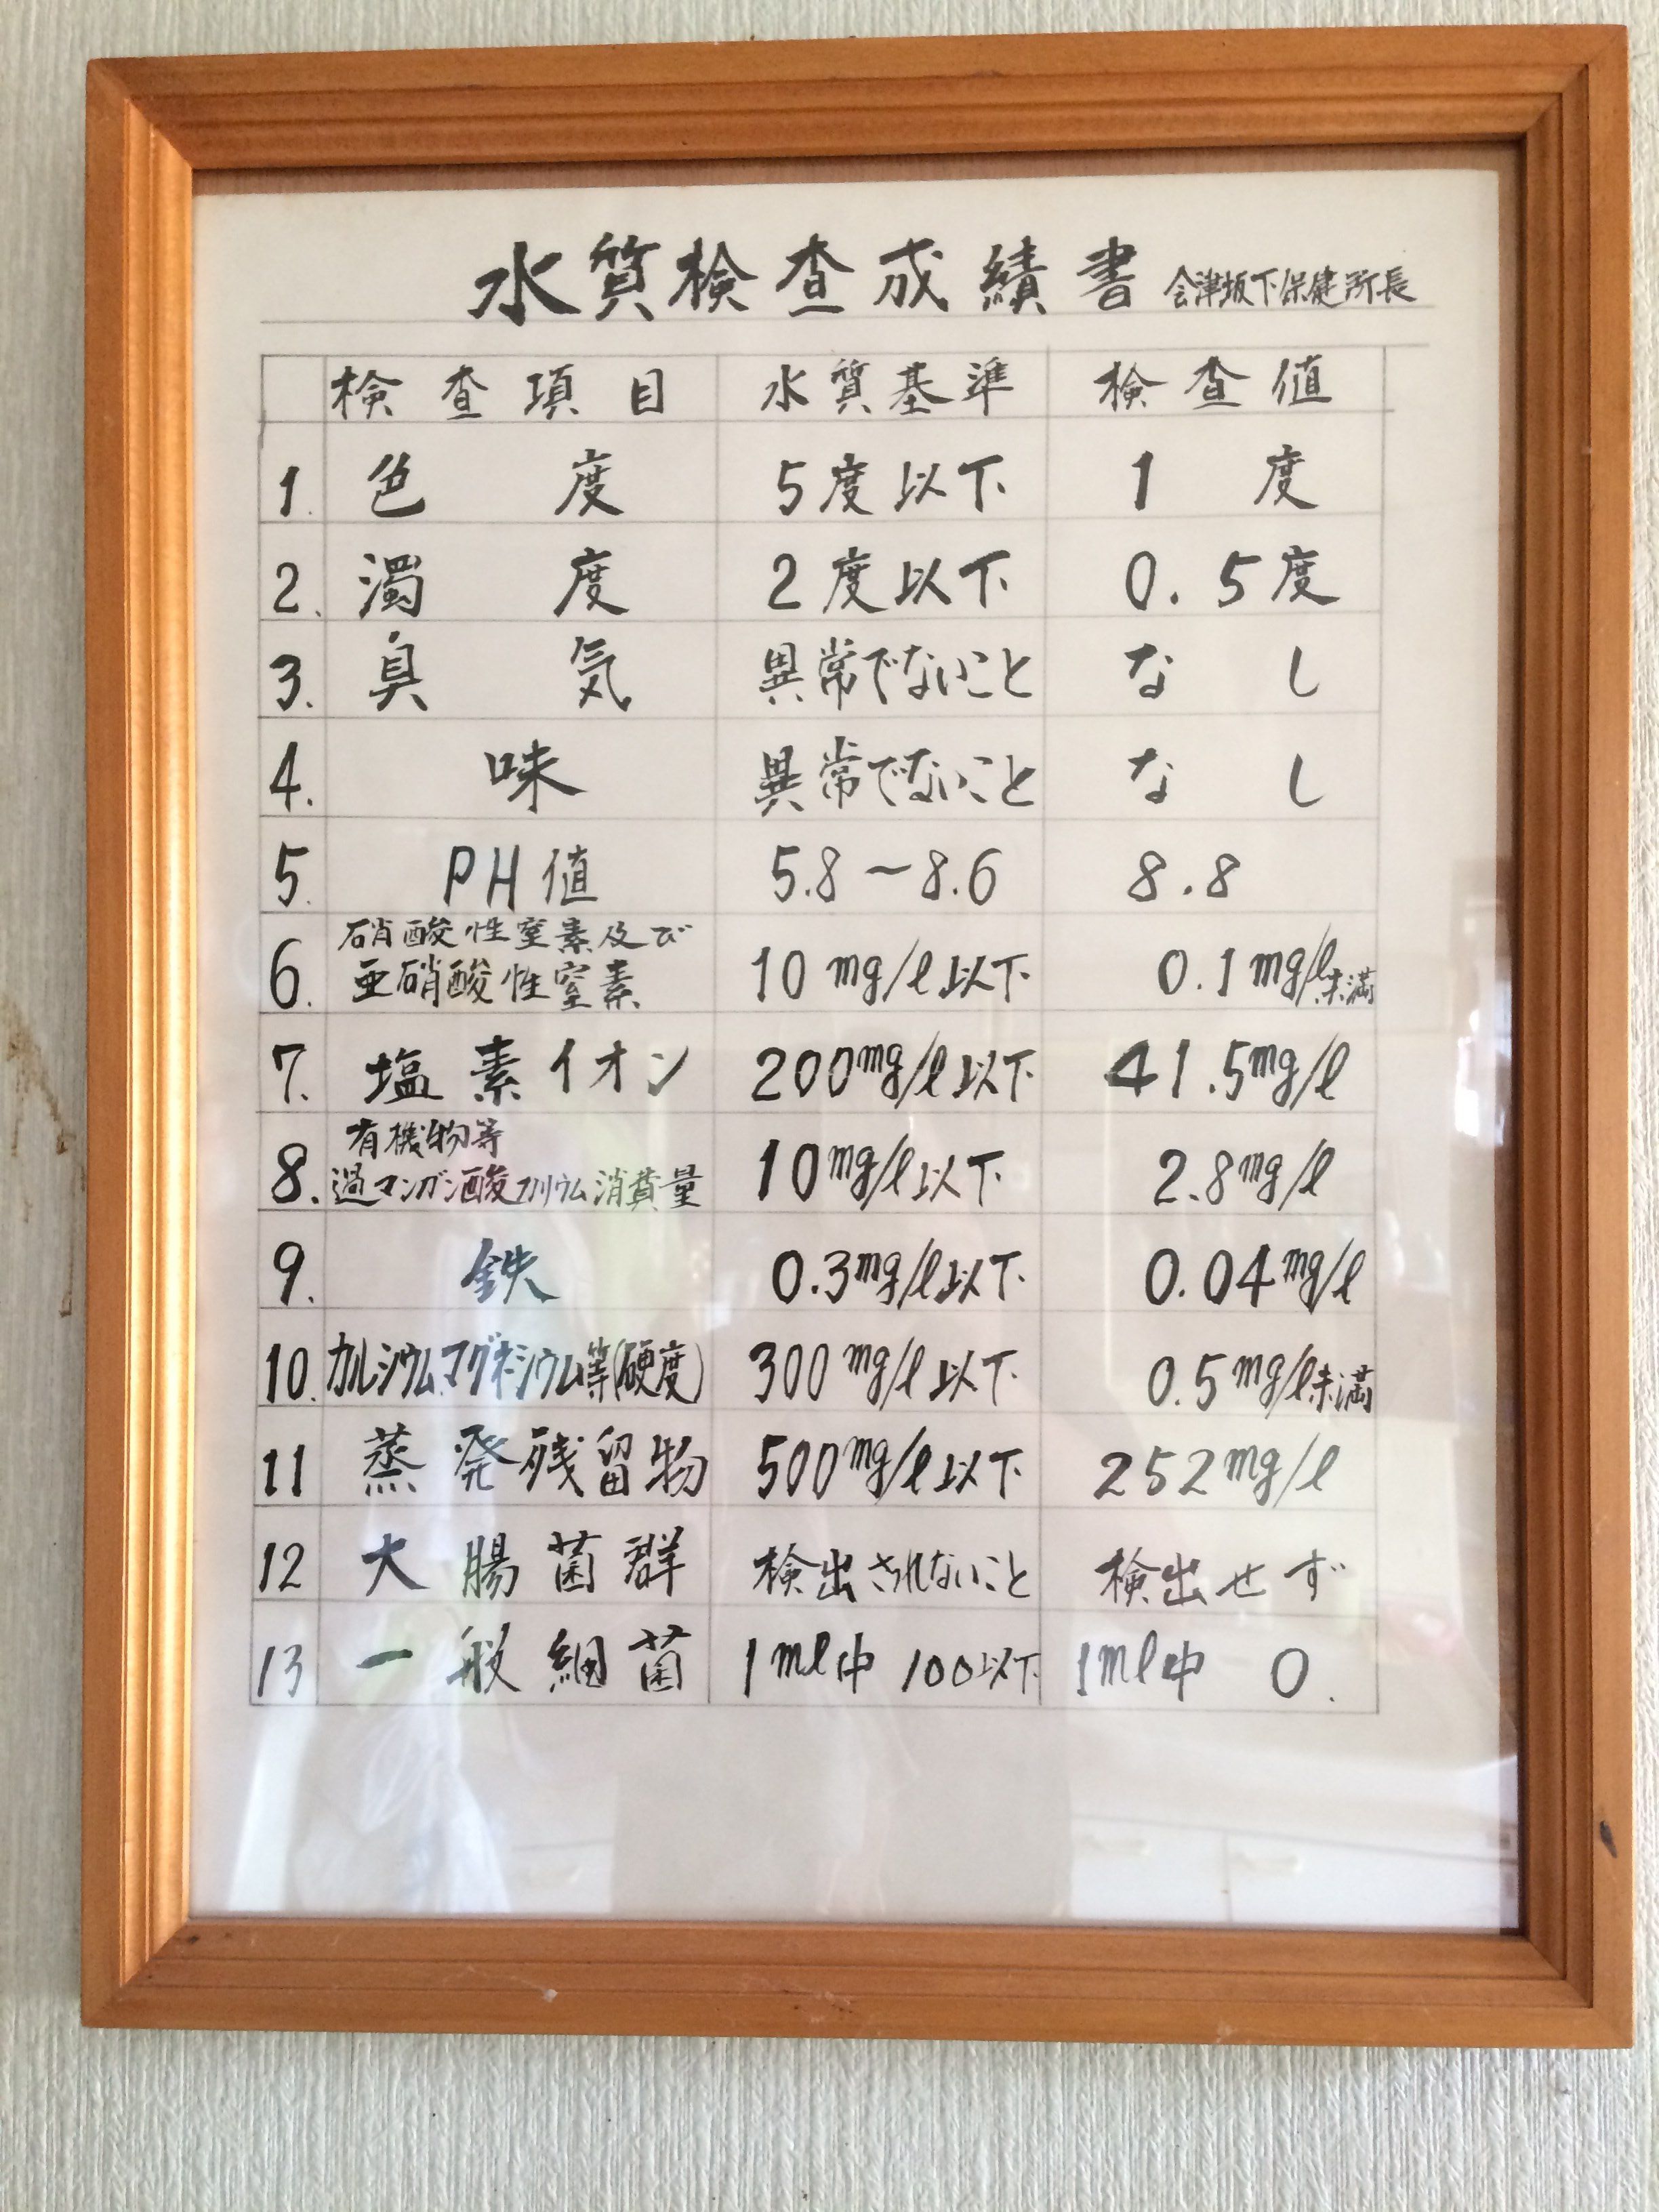 水質検査成績書 会津坂下保健所長
検査項目 水質基準 検査値
1. 色度 5度以下 1度
2. 濁度 2度以下 0.5度
3. 臭気 異常でないこと なし
4. 味 異常でないこと なし
5. PH値 5.8〜8.6 8.8
6. 硝酸性窒素及び
亜硝酸性窒素 10mg/l以下 0.1mg/l未満
7. 塩素イオン 200mg/l以下 41.5mg/l
8. 有機物等
過マンガン酸カリウム消費量 10mg/l以下 2.8mg/l
9. 鉄 0.3mg/l以下 0.04mg/l
10. カルシウム、マグネシウム等(硬度) 300mg/l以下 0.5mg/l未満
11 蒸発残留物 500mg/l以下 252mg/l
12 大腸菌群 検出されないこと 検出せず
13 一般細菌 1ml中 100以下 1ml中 0.